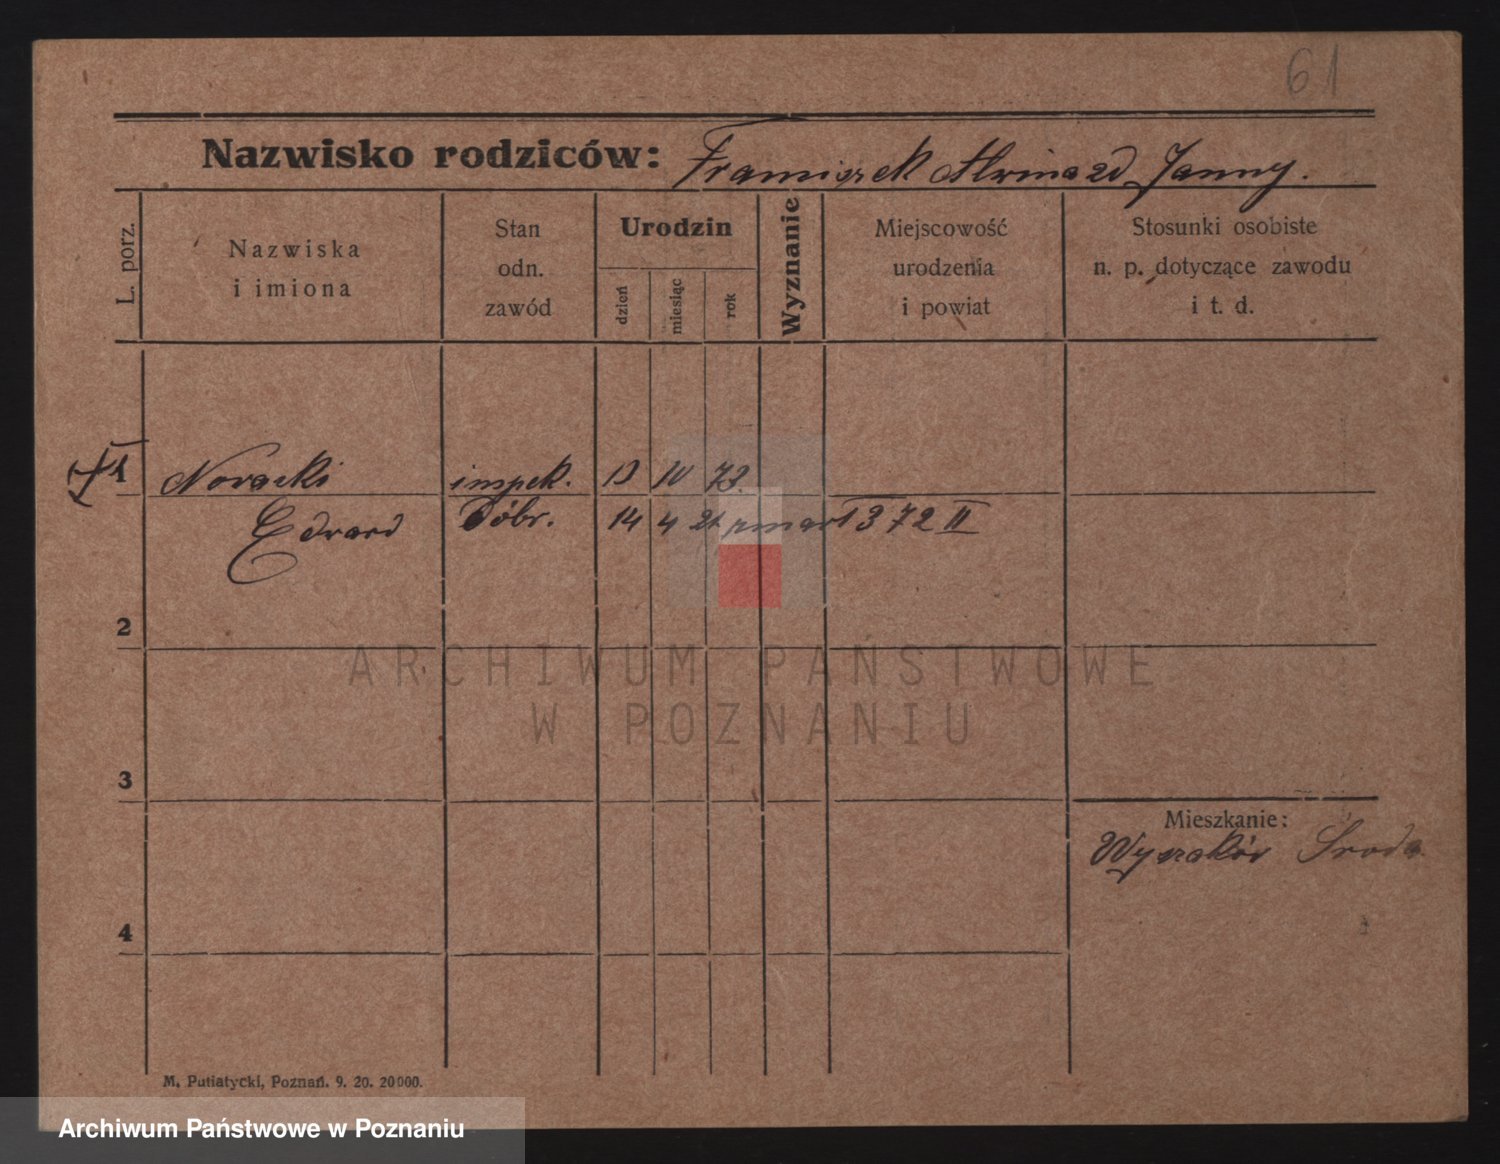 61
Nazwisko rodziców: Franciszek Alwina zd Janny.
L. porz.
Nazwiska
i imiona
Stan
odn.
zawód
Urodzin
dzień
miesiąc
rok
Wyznanie
Miejscowość
urodzenia
i powiat
Stosunki osobiste
n. p. dotyczące zawodu
i t. d.
1 Noracki inspek. 13 10 73.
Edward Dóbr. 14 4 21 zmarł 372 II
2
ARCHIWUM PAŃSTWOWE
W POZNANIU
3
Mieszkanie:
Wyszaków Środa
4
M. Putiatycki, Poznań. 9. 20. 20000.
Archiwum Państwowe w Poznaniu